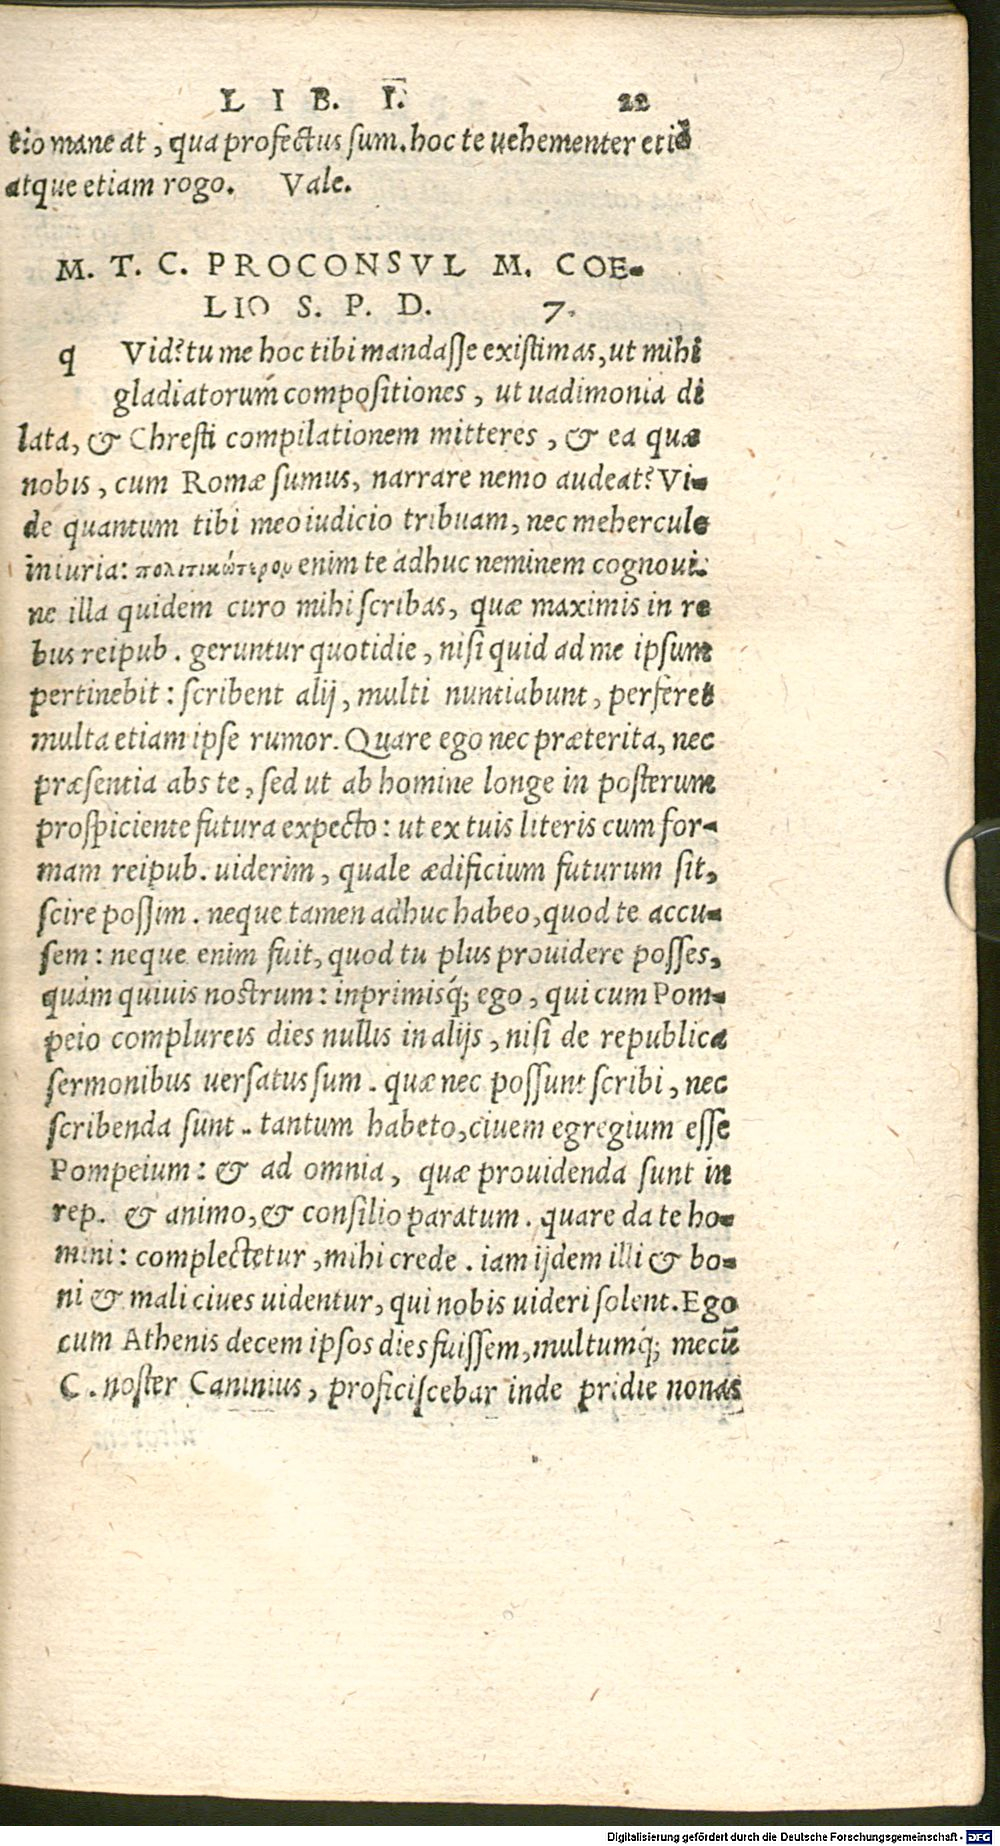 LIB. I. 22
tio maneat, qua profectus sum. hoc te uehementer etiã
atque etiam rogo. Vale.
M. T. C. PROCONSVL M. COE-
LIO S. P. D. 7.
q Vid? tu me hoc tibi mandasse existimas, ut mihi
gladiatorum compositiones, ut uadimonia di
lata, & Chresti compilationem mitteres, & ea quæ
nobis, cum Romæ sumus, narrare nemo audeat? Vi-
de quantum tibi meo iudicio tribuam, nec mehercule
iniuria: πολιτικώτερον enim te adhuc neminem cognoui.
ne illa quidem curo mihi scribas, quæ maximis in re
bus reipub. geruntur quotidie, nisi quid ad me ipsum
pertinebit: scribent alij, multi nuntiabunt, perferet
multa etiam ipse rumor. Quare ego nec præterita, nec
præsentia abs te, sed ut ab homine longe in posterum
prospiciente futura expecto: ut ex tuis literis cum for-
mam reipub. uiderim, quale ædificium futurum sit,
scire possim. neque tamen adhuc habeo, quod te accu-
sem: neque enim fuit, quod tu plus prouidere posses,
quàm quiuis nostrum: inprimisq́; ego, qui cum Pom-
peio complureis dies nullis in alijs, nisi de republica
sermonibus uersatus sum. quæ nec possunt scribi, nec
scribenda sunt. tantum habeto, ciuem egregium esse
Pompeium: & ad omnia, quæ prouidenda sunt in
rep. & animo, & consilio paratum. quare da te ho-
mini: complectetur, mihi crede. iam ijdem illi & bo-
ni & mali ciues uidentur, qui nobis uideri solent. Ego
cum Athenis decem ipsos dies fuissem, multumq́; mecũ
C. noster Caninius, proficiscebar inde pridie nonas
Digitalisierung gefördert durch die Deutsche Forschungsgemeinschaft - DFG